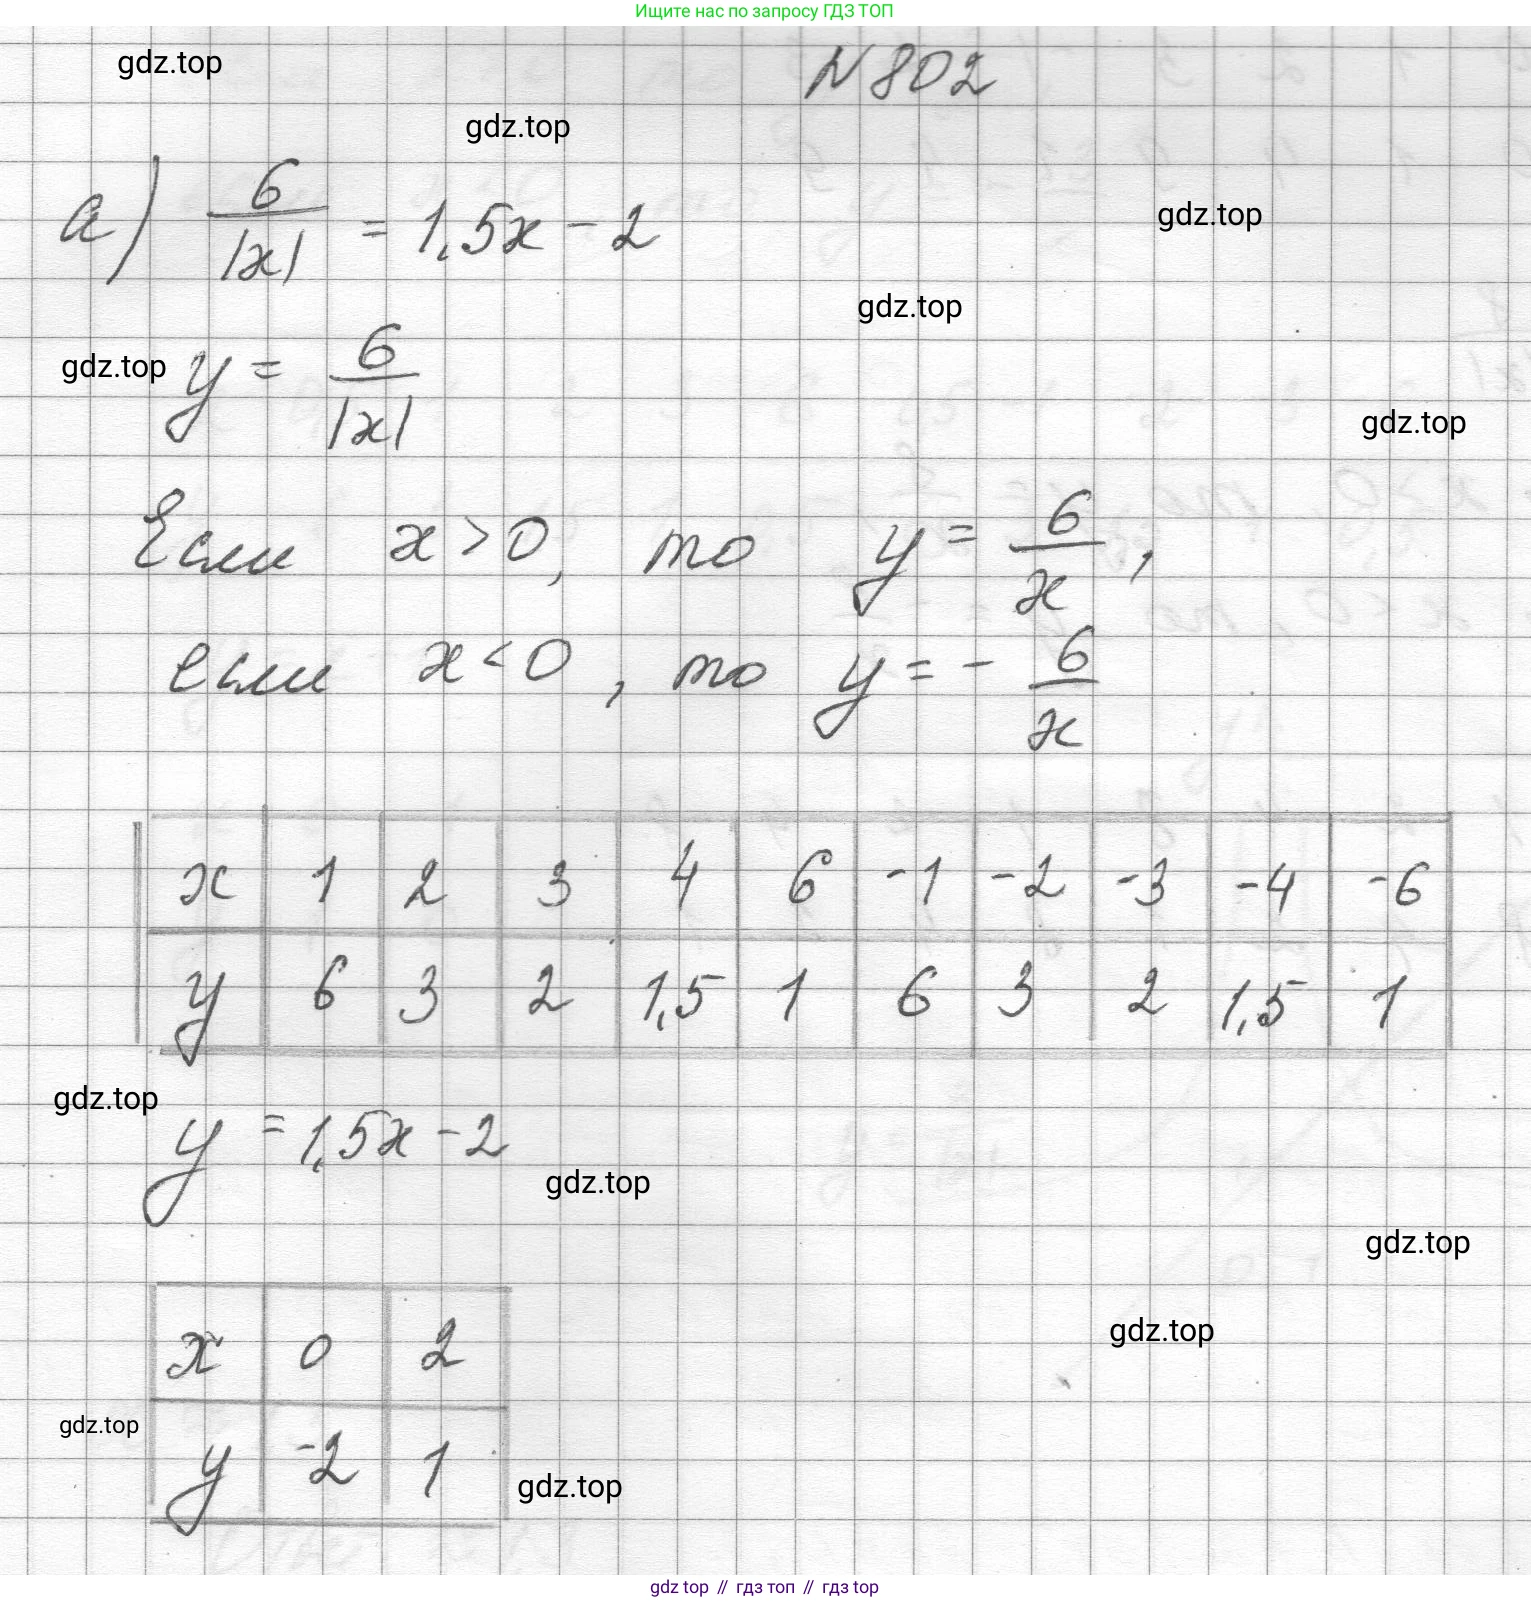 Ищите нас по запросу ГДЗ ТОП
gdz.top
N 802
gdz.top
а) 6/|x| = 1,5x - 2
gdz.top
gdz.top
gdz.top
y = 6/|x|
gdz.top
Если x > 0, то y = 6/x,
если x < 0, то y = - 6/x
x 1 2 3 4 6 -1 -2 -3 -4 -6
y 6 3 2 1,5 1 6 3 2 1,5 1
gdz.top
y = 1,5x - 2
gdz.top
gdz.top
x 0 2
gdz.top
gdz.top
y -2 1
gdz.top
gdz top // гдз топ // гдз top